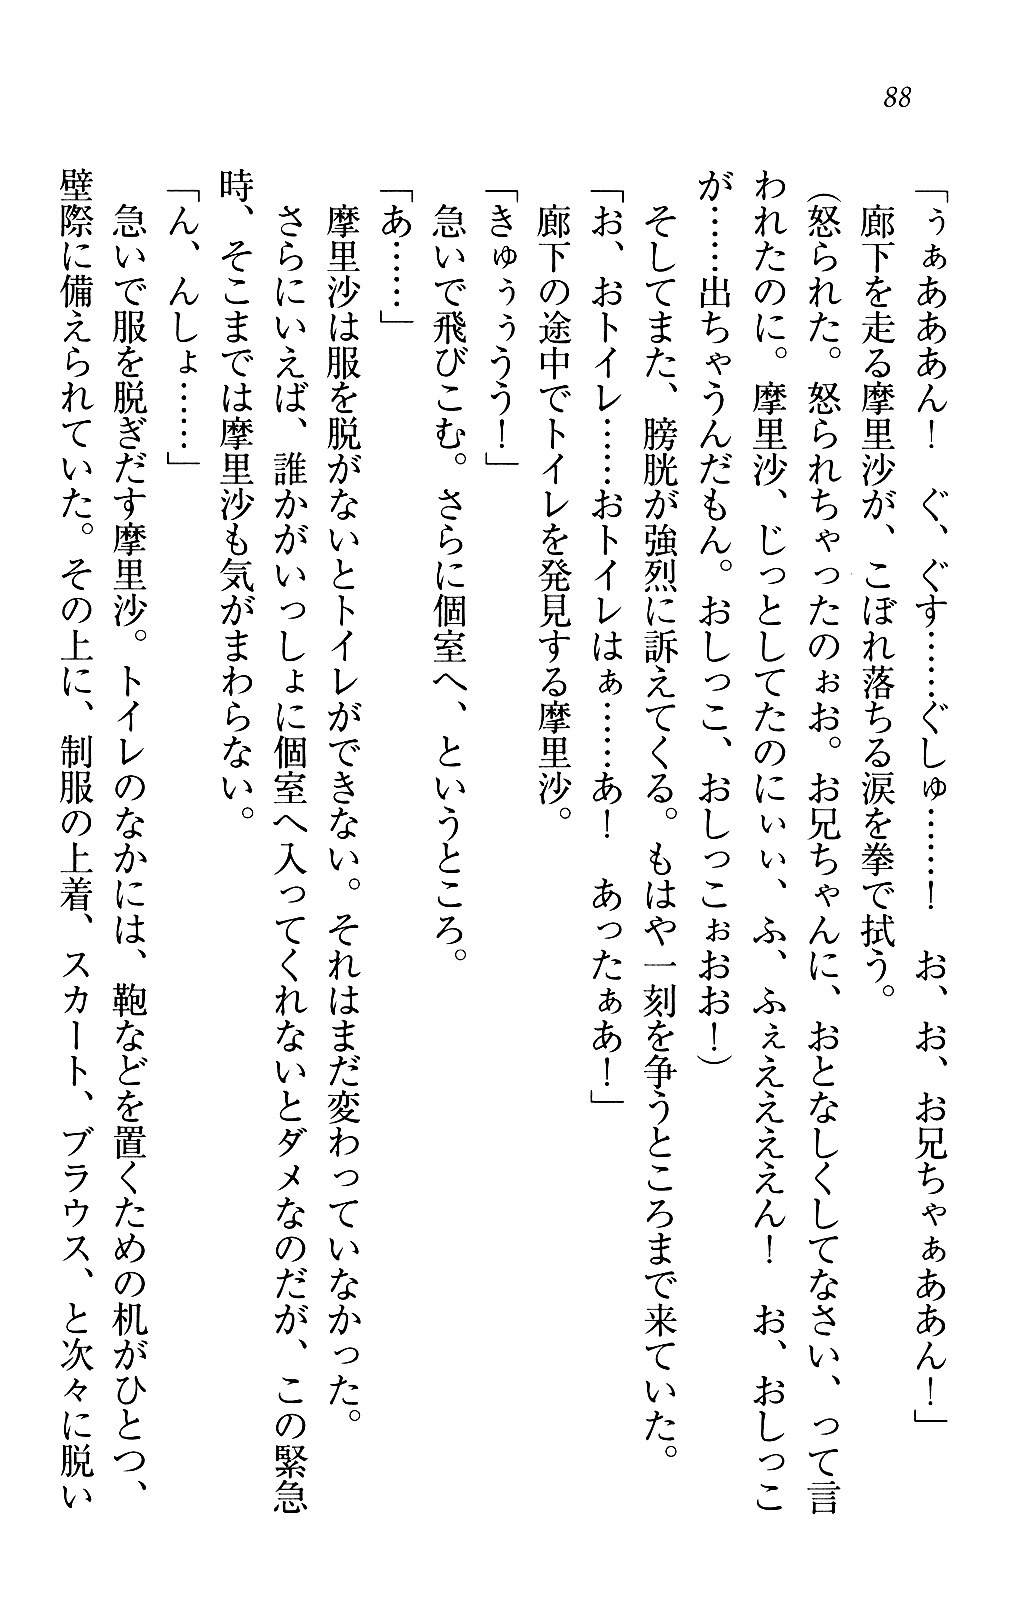 88
「ぅぁあああん！　ぐ、ぐす……ぐしゅ……！　お、お、お兄ちゃぁああん！」
　廊下を走る摩里沙が、こぼれ落ちる涙を拳で拭う。
（怒られた。怒られちゃったのぉお。お兄ちゃんに、おとなしくしてなさい、って言
われたのに。摩里沙、じっとしてたのにぃぃ、ふ、ふぇええええん！　お、おしっこ
が……出ちゃうんだもん。おしっこ、おしっこぉおお！）
　そしてまた、膀胱が強烈に訴えてくる。もはや一刻を争うところまで来ていた。
「お、おトイレ……おトイレはぁ……あ！　あったぁあ！」
　廊下の途中でトイレを発見する摩里沙。
「きゅぅぅうう！」
　急いで飛びこむ。さらに個室へ、というところ。
「あ……」
　摩里沙は服を脱がないとトイレができない。それはまだ変わっていなかった。
　さらにいえば、誰かがいっしょに個室へ入ってくれないとダメなのだが、この緊急
時、そこまでは摩里沙も気がまわらない。
「ん、んしょ……」
　急いで服を脱ぎだす摩里沙。トイレのなかには、鞄などを置くための机がひとつ、
壁際に備えられていた。その上に、制服の上着、スカート、ブラウス、と次々に脱い